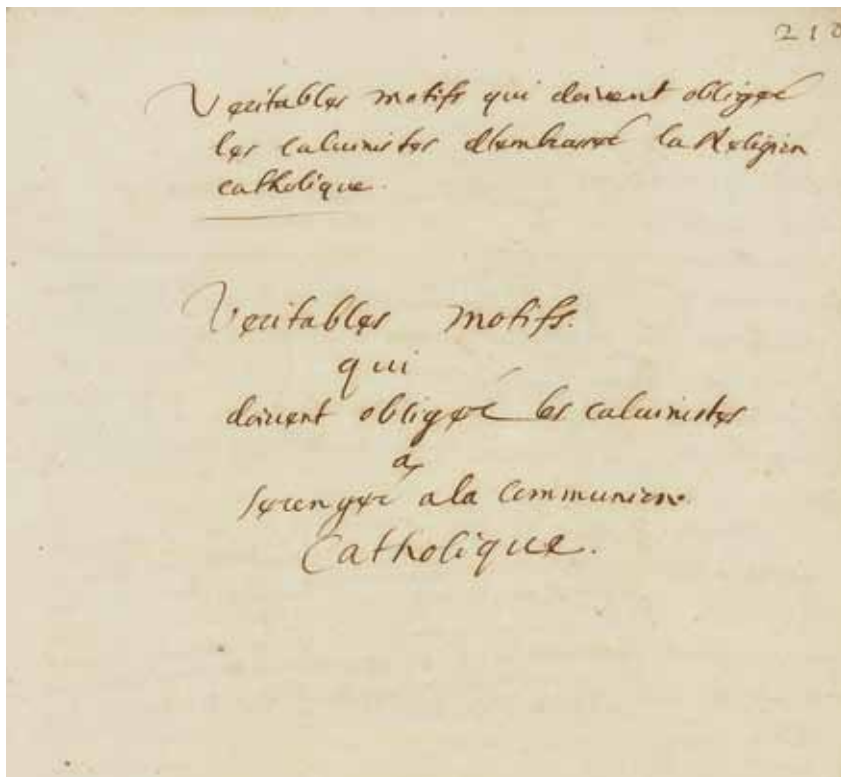 210
Veritables motifs qui doivent obliger
les caluinistes d'embrasser la Religion
catholique.
Veritables motifs.
qui
doiuent obliger les caluinistes
a
se renger a la communion.
Catholique.